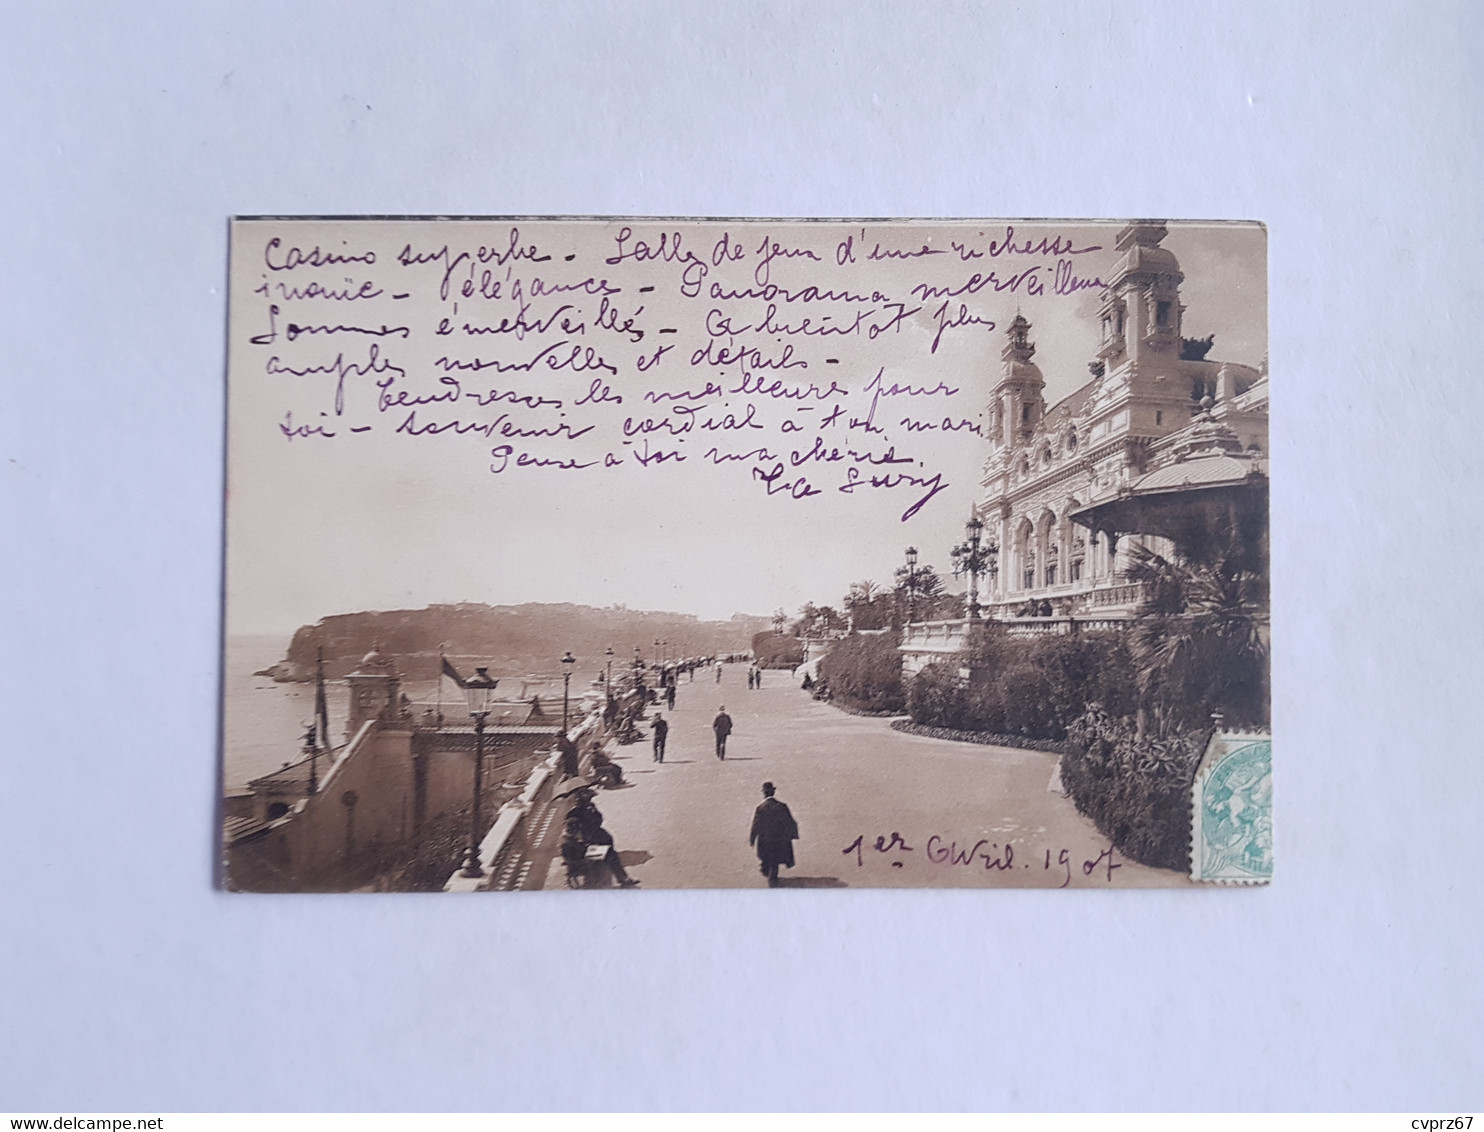 Casino superbe - Salle de jeux d'une richesse
inouïe - élégance - Panorama merveilleux
Sommes émerveillés - A bientôt plus
amples nouvelles et détails -
Tendresses les meilleures pour
toi - souvenir cordial à ton mari
Pense à toi ma chérie
Ta
1er Avril. 1907
cvprz67